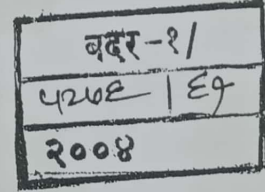 बदर-१/
५२७६ | ६७
२००४